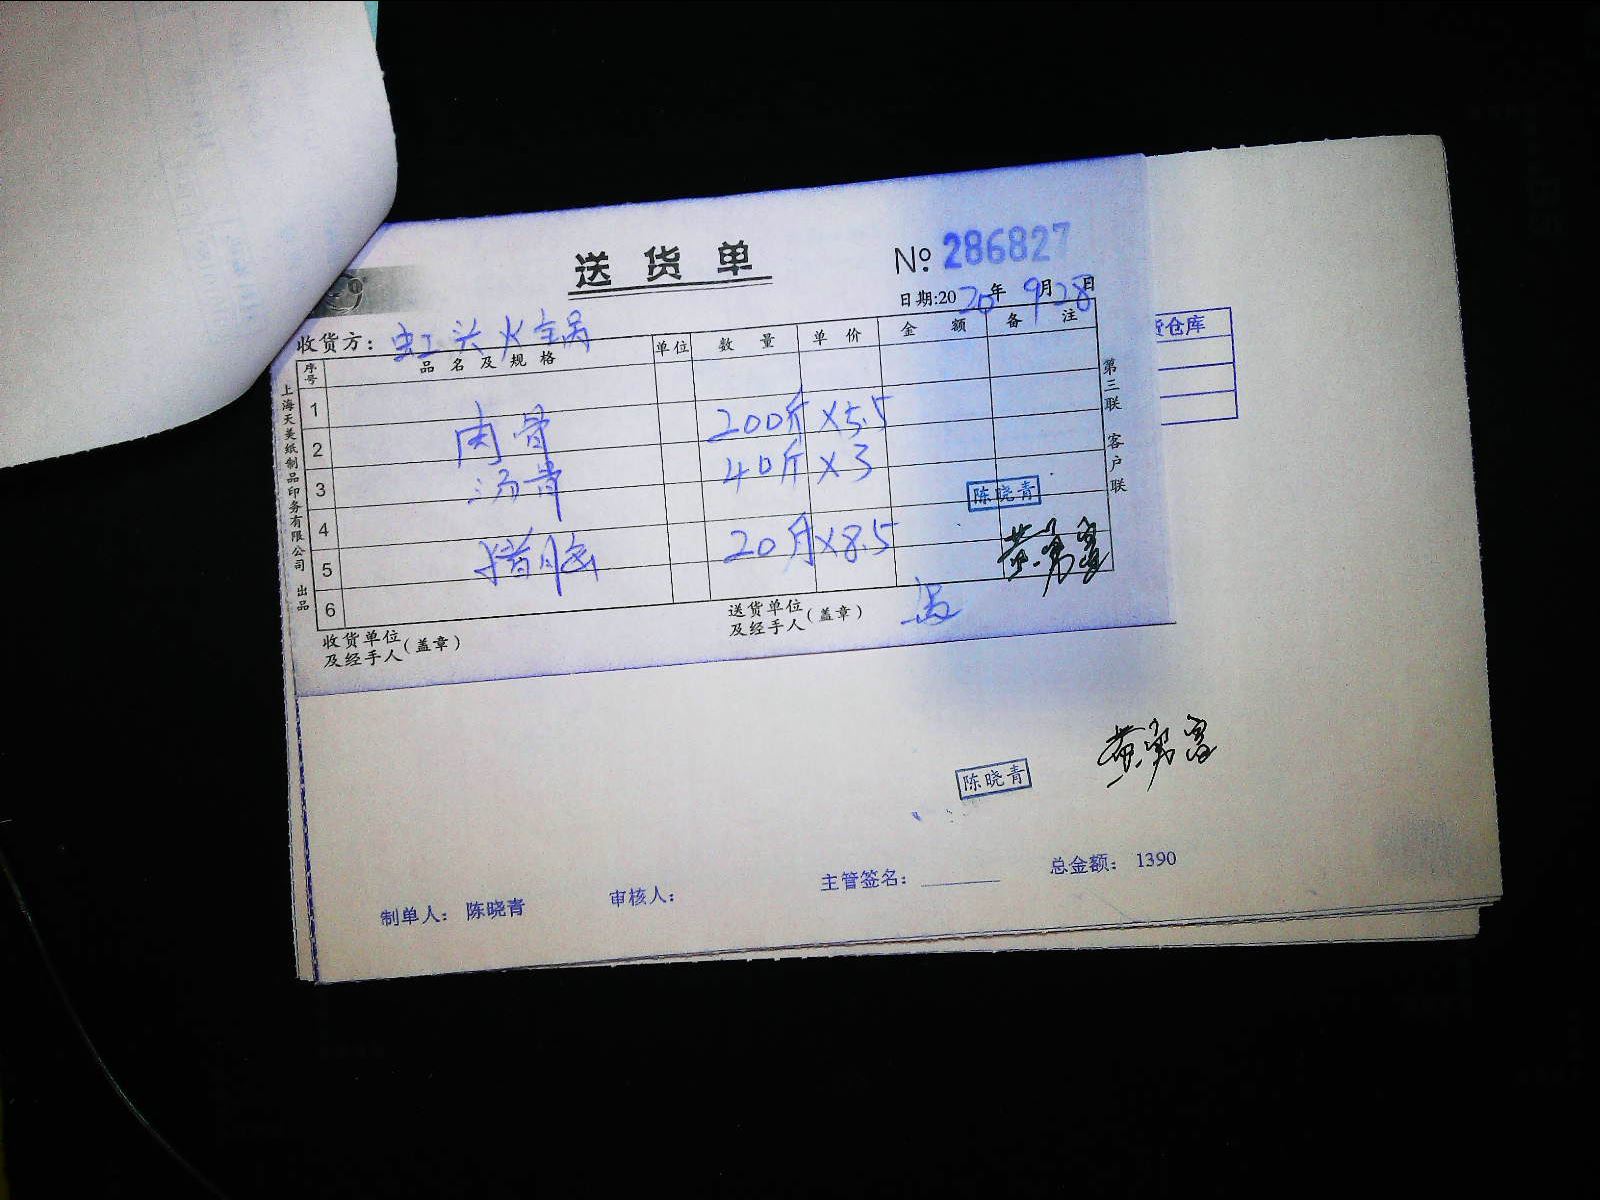 送货单
№ 286827
日期:2020年9月28日
收货方：虹头火锅
序号 品名及规格 单位 数量 单价 金额 备注
1
2 肉骨 200斤 ×5.5
3 汤骨 40斤 ×3
4
5 猪脑 20 ×8.5
6
陈晓青
收货单位及经手人(盖章)
送货单位及经手人(盖章)
上海天美纸制品印务有限公司 出品
第三联 客户联
货仓库
陈晓青
制单人： 陈晓青
审核人：
主管签名：
总金额： 1390